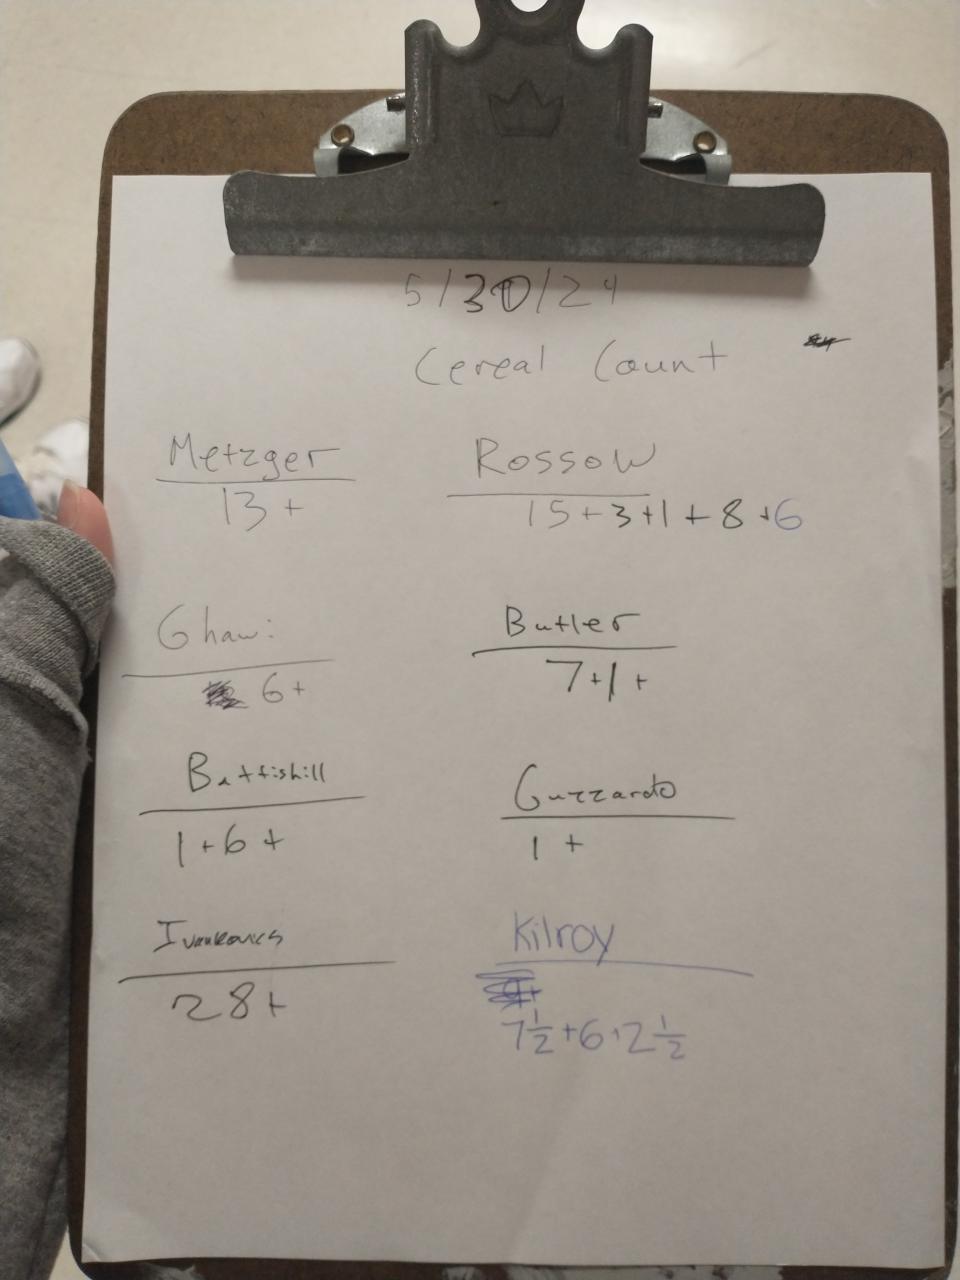 5/30/24
Cereal Count
Metzger
13 +
Rossow
15 + 3 + 1 + 8 + 6
Ghawi
6 +
Butler
7 + 1 +
Battishill
1 + 6 +
Guzzardo
1 +
28 +
Kilroy
7 1/2 + 6 + 2 1/2